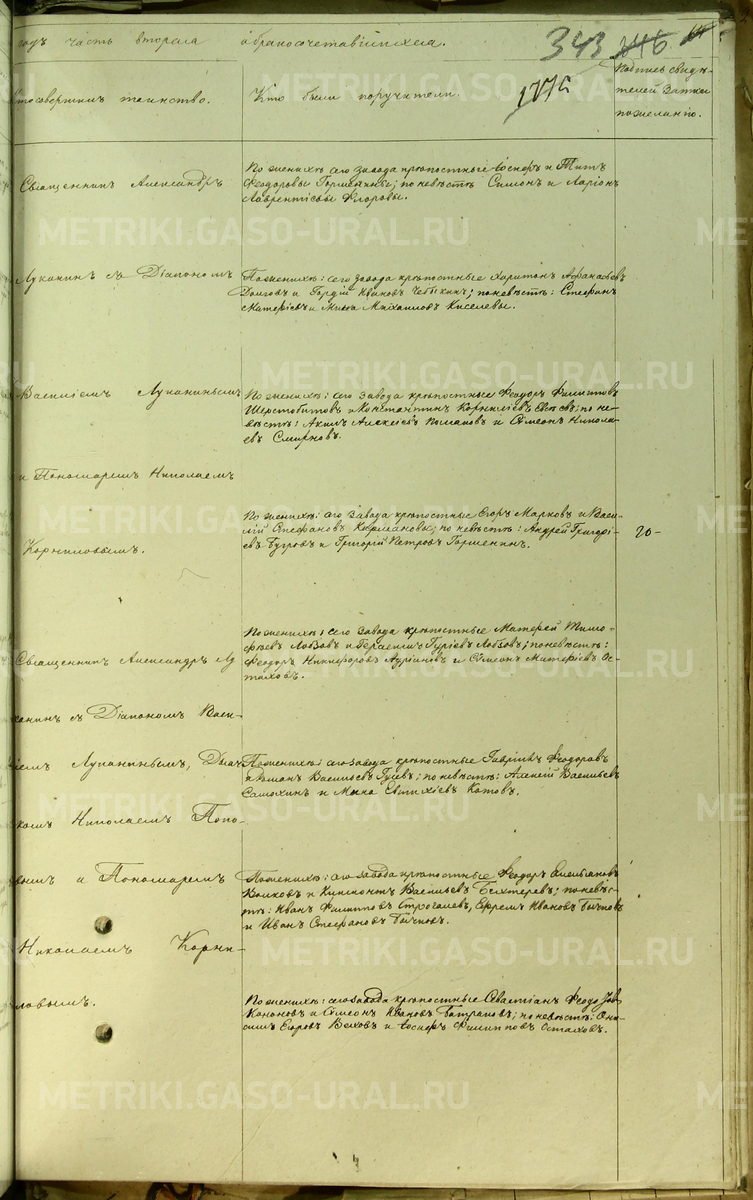 годъ часть вторая
о бракосочетавшихся.
343 146
1775
Кто совершилъ таинство.
Кто были поручители.
Подпись свидѣ-
телей записи
по желанію.
Священникъ Александръ
По женихѣ: сего завода крѣпостные Іосифъ и Титъ
Феодоровы Горшенины; по невѣстѣ Симонъ и Ларіонъ
Лаврентіевы Егоровы.
Луканинъ съ Діакономъ
По женихѣ: сего завода крѣпостные Харитонъ Афанасьевъ
Долговъ и Гордій Ивановъ Чебыкинъ; по невѣстѣ: Стефанъ
Матѳіевъ и Михаиловъ Киселевы.
Василіемъ Луканинымъ
По женихѣ: сего завода крѣпостные Феодоръ Филиповъ
Шерстобитовъ и Константинъ Корниліевъ; по не-
вѣстѣ: Акимъ Алексіевъ и Симеонъ Никола-
евъ Смирновъ.
и Пономаремъ Николаемъ
Корниловымъ.
По женихѣ: сего завода крѣпостные Егоръ Марковъ и Васи-
лій Стефановъ; по невѣстѣ: Андрей Григорі-
евъ Бугровъ и Григорій Петровъ Горшенинъ.
20-
Священникъ Александръ Лу
По женихѣ: сего завода крѣпостные Матѳей Тимо-
фѣевъ Лобзовъ и Герасимъ Гуріевъ Лобзовъ; по невѣстѣ:
Феодоръ Никифоровъ и Симеонъ Матѳіевъ Ос-
таховъ.
канинъ съ Діакономъ Васи-
ліемъ Луканинымъ, Дьяч
По женихѣ: сего завода крѣпостные Гавріилъ Феодоровъ
и Романъ Васильевъ Гуsевъ; по невѣстѣ: Алексій Васильевъ
Самохинъ и Евтихіевъ Котовъ.
комъ Николаемъ Попо-
вымъ и Пономаремъ
По женихѣ: сего завода крѣпостные Феодоръ Емельяновъ
Волковъ и Васильевъ Бехтеревъ; по невѣс-
тѣ: Иванъ Филипповъ Строгалевъ, Ефремъ Ивановъ Бычковъ
и Иванъ Стефановъ Бычковъ.
Николаемъ Корни-
ловымъ.
По женихѣ: сего завода крѣпостные Севастіанъ Феодоровъ
Кононовъ и Симеонъ Ивановъ; по невѣстѣ: Они-
симъ Егоровъ и Іосифъ Филипповъ Остаховъ.
METRIKI.GASO-URAL.RU